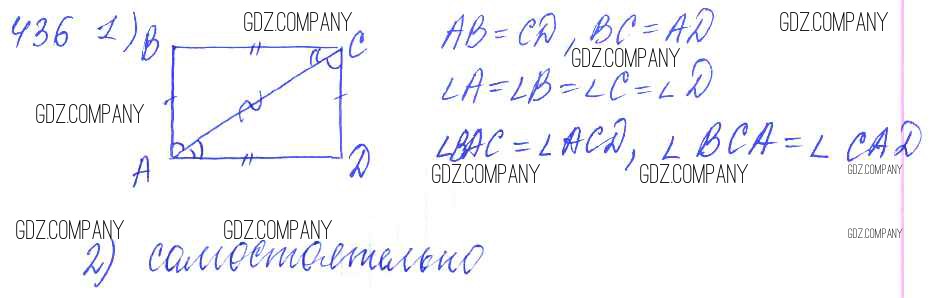 436 1) B C GDZ.COMPANY AB = CD, BC = AD GDZ.COMPANY
GDZ.COMPANY
∠A = ∠B = ∠C = ∠D
GDZ.COMPANY
∠BAC = ∠ACD, ∠BCA = ∠CAD
A D GDZ.COMPANY GDZ.COMPANY GDZ.COMPANY
GDZ.COMPANY GDZ.COMPANY GDZ.COMPANY
2) самостоятельно